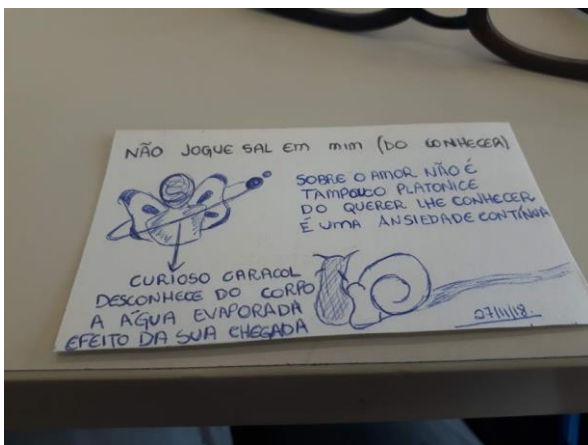 NÃO JOGUE SAL EM mim (DO CONHECER)
SOBRE O AMOR NÃO É
TAMPOUCO PLATONICE
DO QUERER LHE CONHECER
É UMA ANSIEDADE CONTÍNUA
CURIOSO CARACOL
DESCONHECE DO CORPO
A ÁGUA EVAPORADA
EFEITO DA SUA CHEGADA
27/11/18.